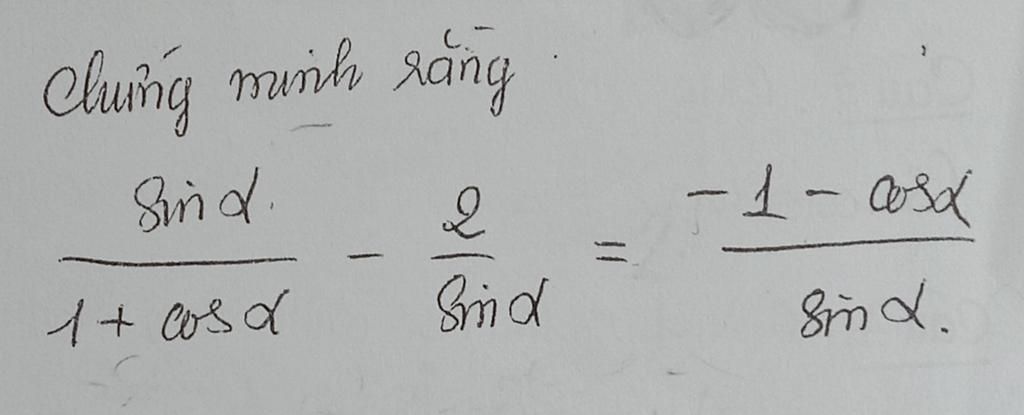 Chứng minh rằng
sin α / (1 + cos α) - 2 / sin α = (-1 - cos α) / sin α.